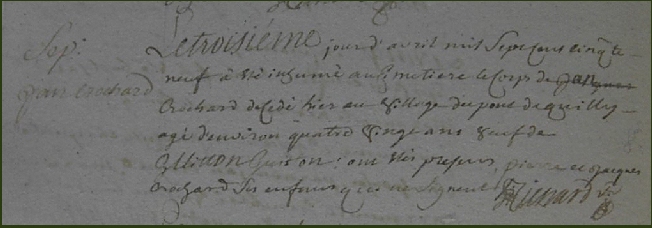 Sep:
jan crochard
Le troisiéme jour d'avril mil sept cens cinqte
neuf a été inhumé au cimetiere le corps de
Crochard decedé hier au village du pont de quilly
agé d'environ quatre vingt ans veuf de
ont étés presens pierre et jacques
Crochard ses enfans qui ne signent